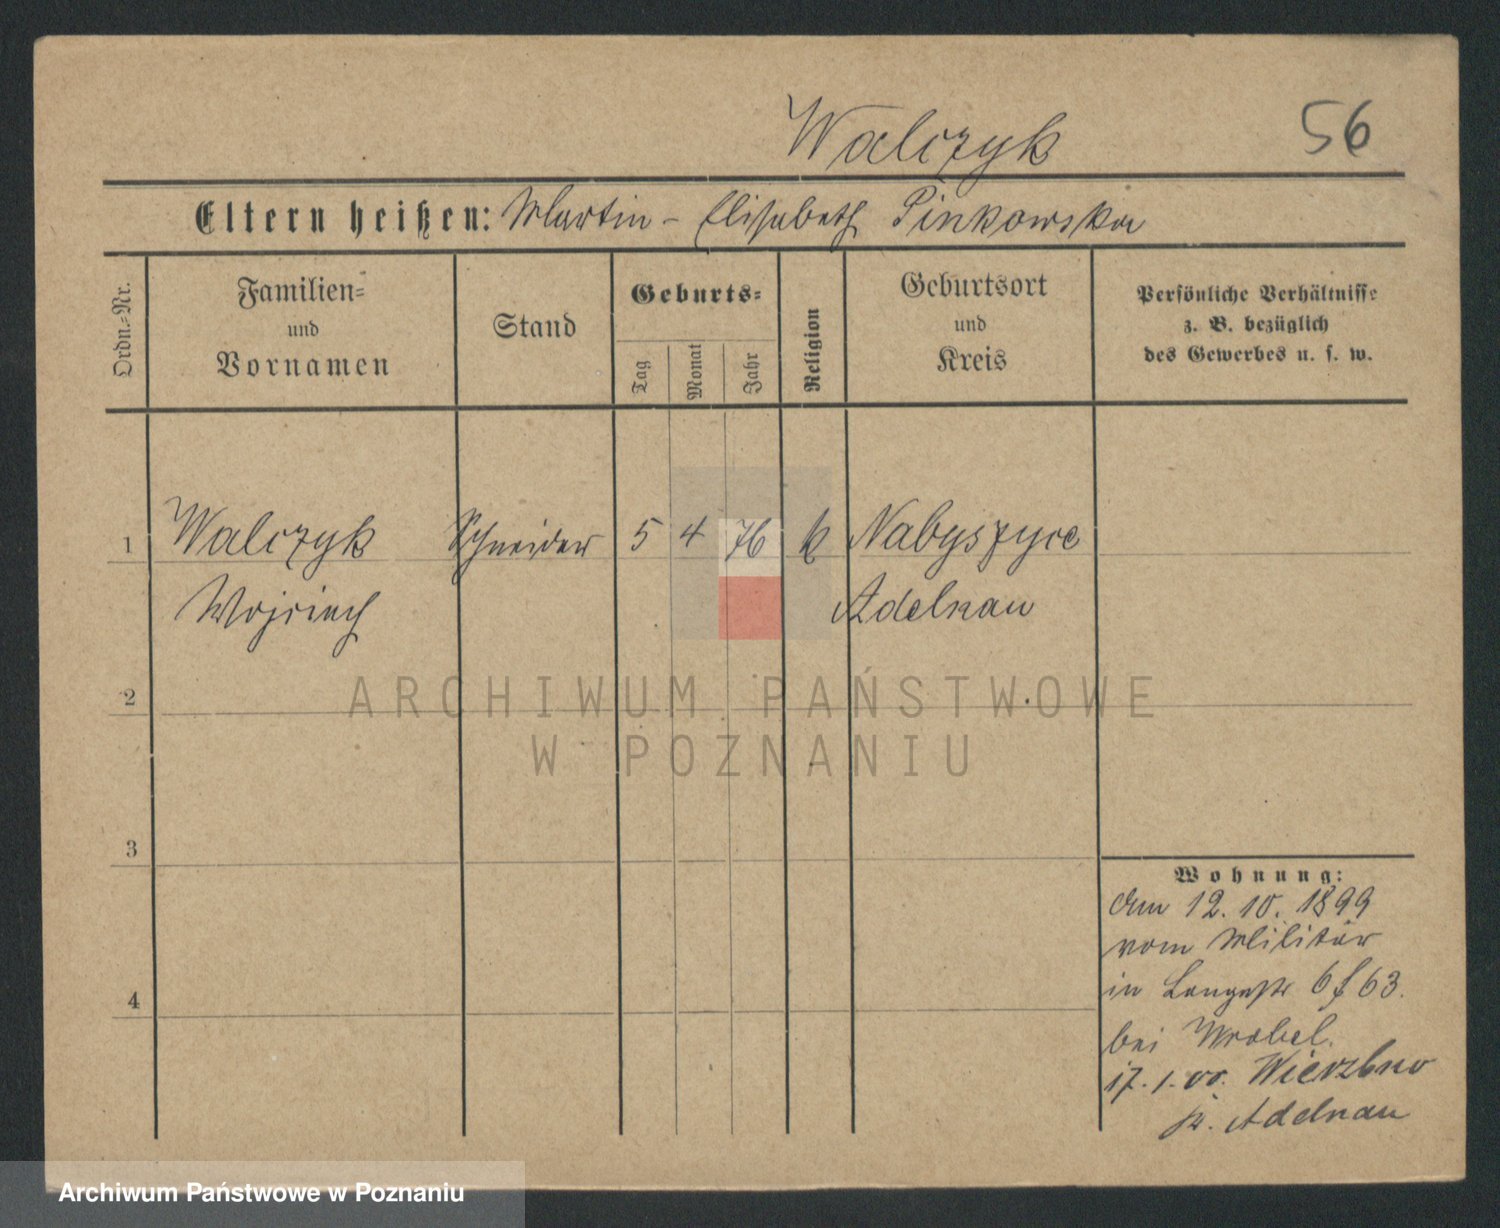 Walczyk
56
Eltern heißen: Martin - Elisabeth Pinkowska
Ordn.-Nr.
Familien- und Vornamen
Stand
Geburts-
Tag
Monat
Jahr
Religion
Geburtsort und Kreis
Persönliche Verhältnisse
z. B. bezüglich
des Gewerbes u. s. w.
1 Walczyk Schneider 5 4 76 k Nabyszyce
Wojciech Adelnau
2
ARCHIWUM PAŃSTWOWE
W POZNANIU
3
Wohnung:
den 12. 10. 1899
vom Militär
in Langestr 6 63.
4
bei Wrobel.
17. 1. 00. Wierzbno
Adelnau
Archiwum Państwowe w Poznaniu